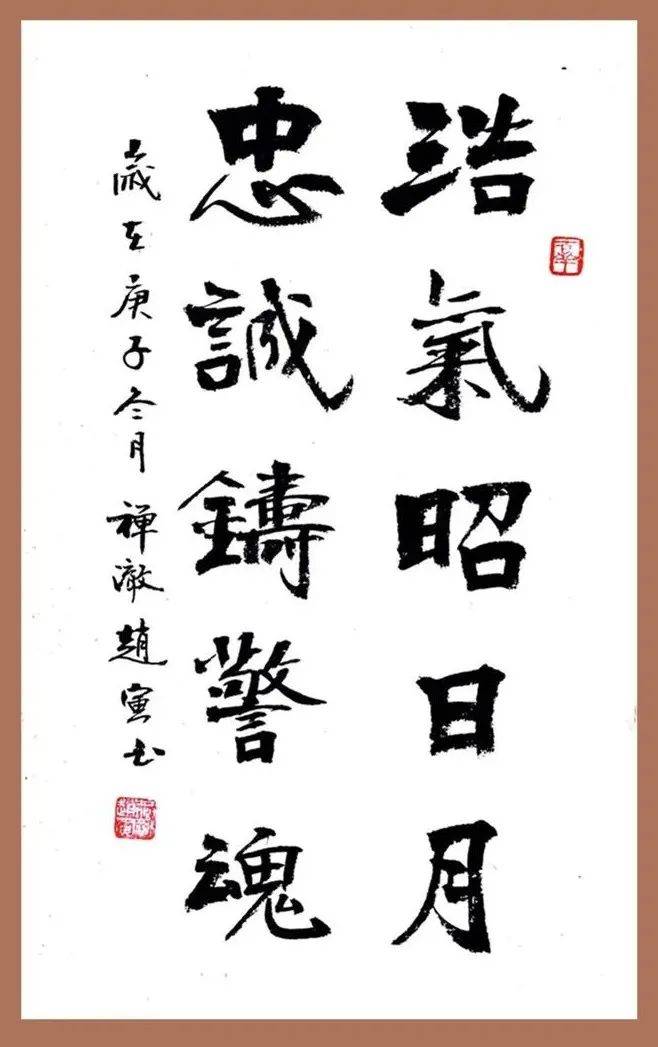 浩氣昭日月
忠誠鑄警魂
歲在庚子冬月禅澈趙寅书